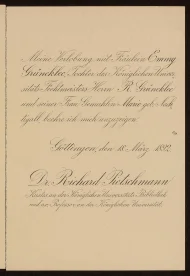 Meine Verlobung mit Fräulein Emmy
Gränckler, Tochter des Königlichen
Herrn R. Gränckler
und seiner Frau Gemahlin Marie geb.
beehre ich mich anzuzeigen.
Göttingen, den 18. März 1892.
Dr. Richard Pietschmann
Custos an der Königlichen Universitäts-Bibliothek
und a.o. Professor an der Königlichen Universität.